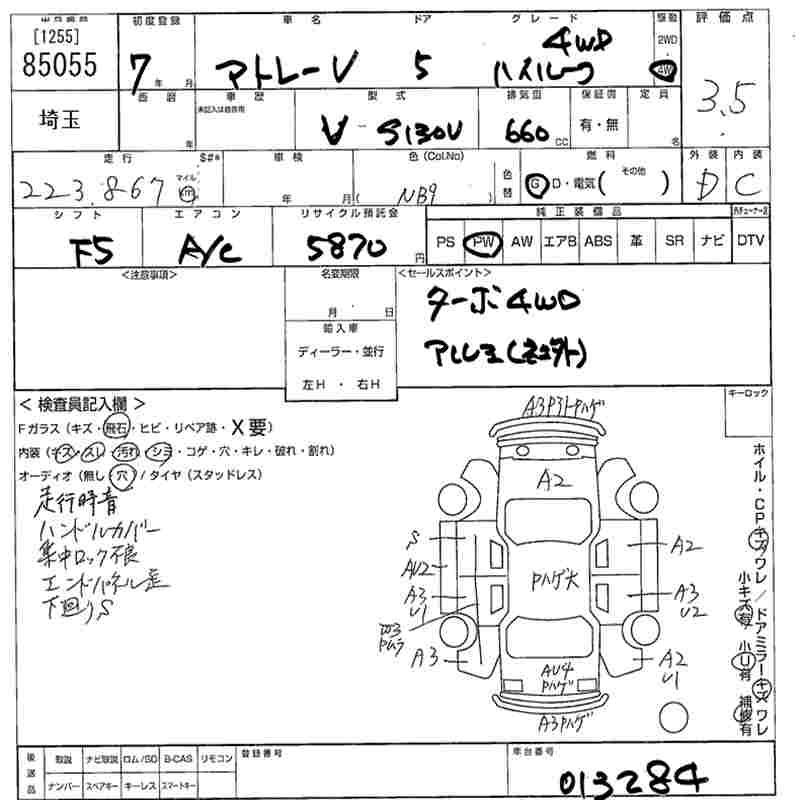 出品番号 初度登録 車名 ドア グレード 駆動 評価点
[1255]
85055 7年 月 アトレーV 5 4WD ハイルーフ 2WD 4W 3.5
埼玉 西暦 年 車歴 未記入は自家用 型式 V-S130V 排気量 660 CC 保証書 有・無 定員 名
走行 223,867 マイル km $#* 車検 年 月 色(Col.No) ( NB9 ) 色替 燃料 G D・電気 その他 ( ) 外装 D 内装 C
シフト エアコン リサイクル預託金 純正装備品
F5 A/C 5870円 PS PW AW エアB ABS 革 SR ナビ DTV
<注意事項> 名変期限 <セールスポイント>
月 日 ターボ4WD
輸入車
ディーラー・並行
左H ・ 右H
キーロック
< 検査員記入欄 >
Fガラス(キズ・飛石・ヒビ・リペア跡・X要)
内装(キズ・スレ・汚れ・シミ・コゲ・穴・キレ・破れ・割れ)
オーディオ(無し・穴)/タイヤ(スタッドレス)
走行時音
ハンドルカバー
集中ロック不良
エンドパネル歪
下回りS
A2
S A2
AU2
Pハゲ大
A3 U1 A3 U2
A3 A2 U1
AU4 Pハゲ
A3Pハゲ
ホイル・CPキズワレ/ドアミラーキズワレ
小キズ有 小U有 補修有
後送品 取説 ナビ取説 ロム/SD B-CAS リモコン 登録番号 車台番号
ナンバー スペアキー キーレス スマートキー 013284